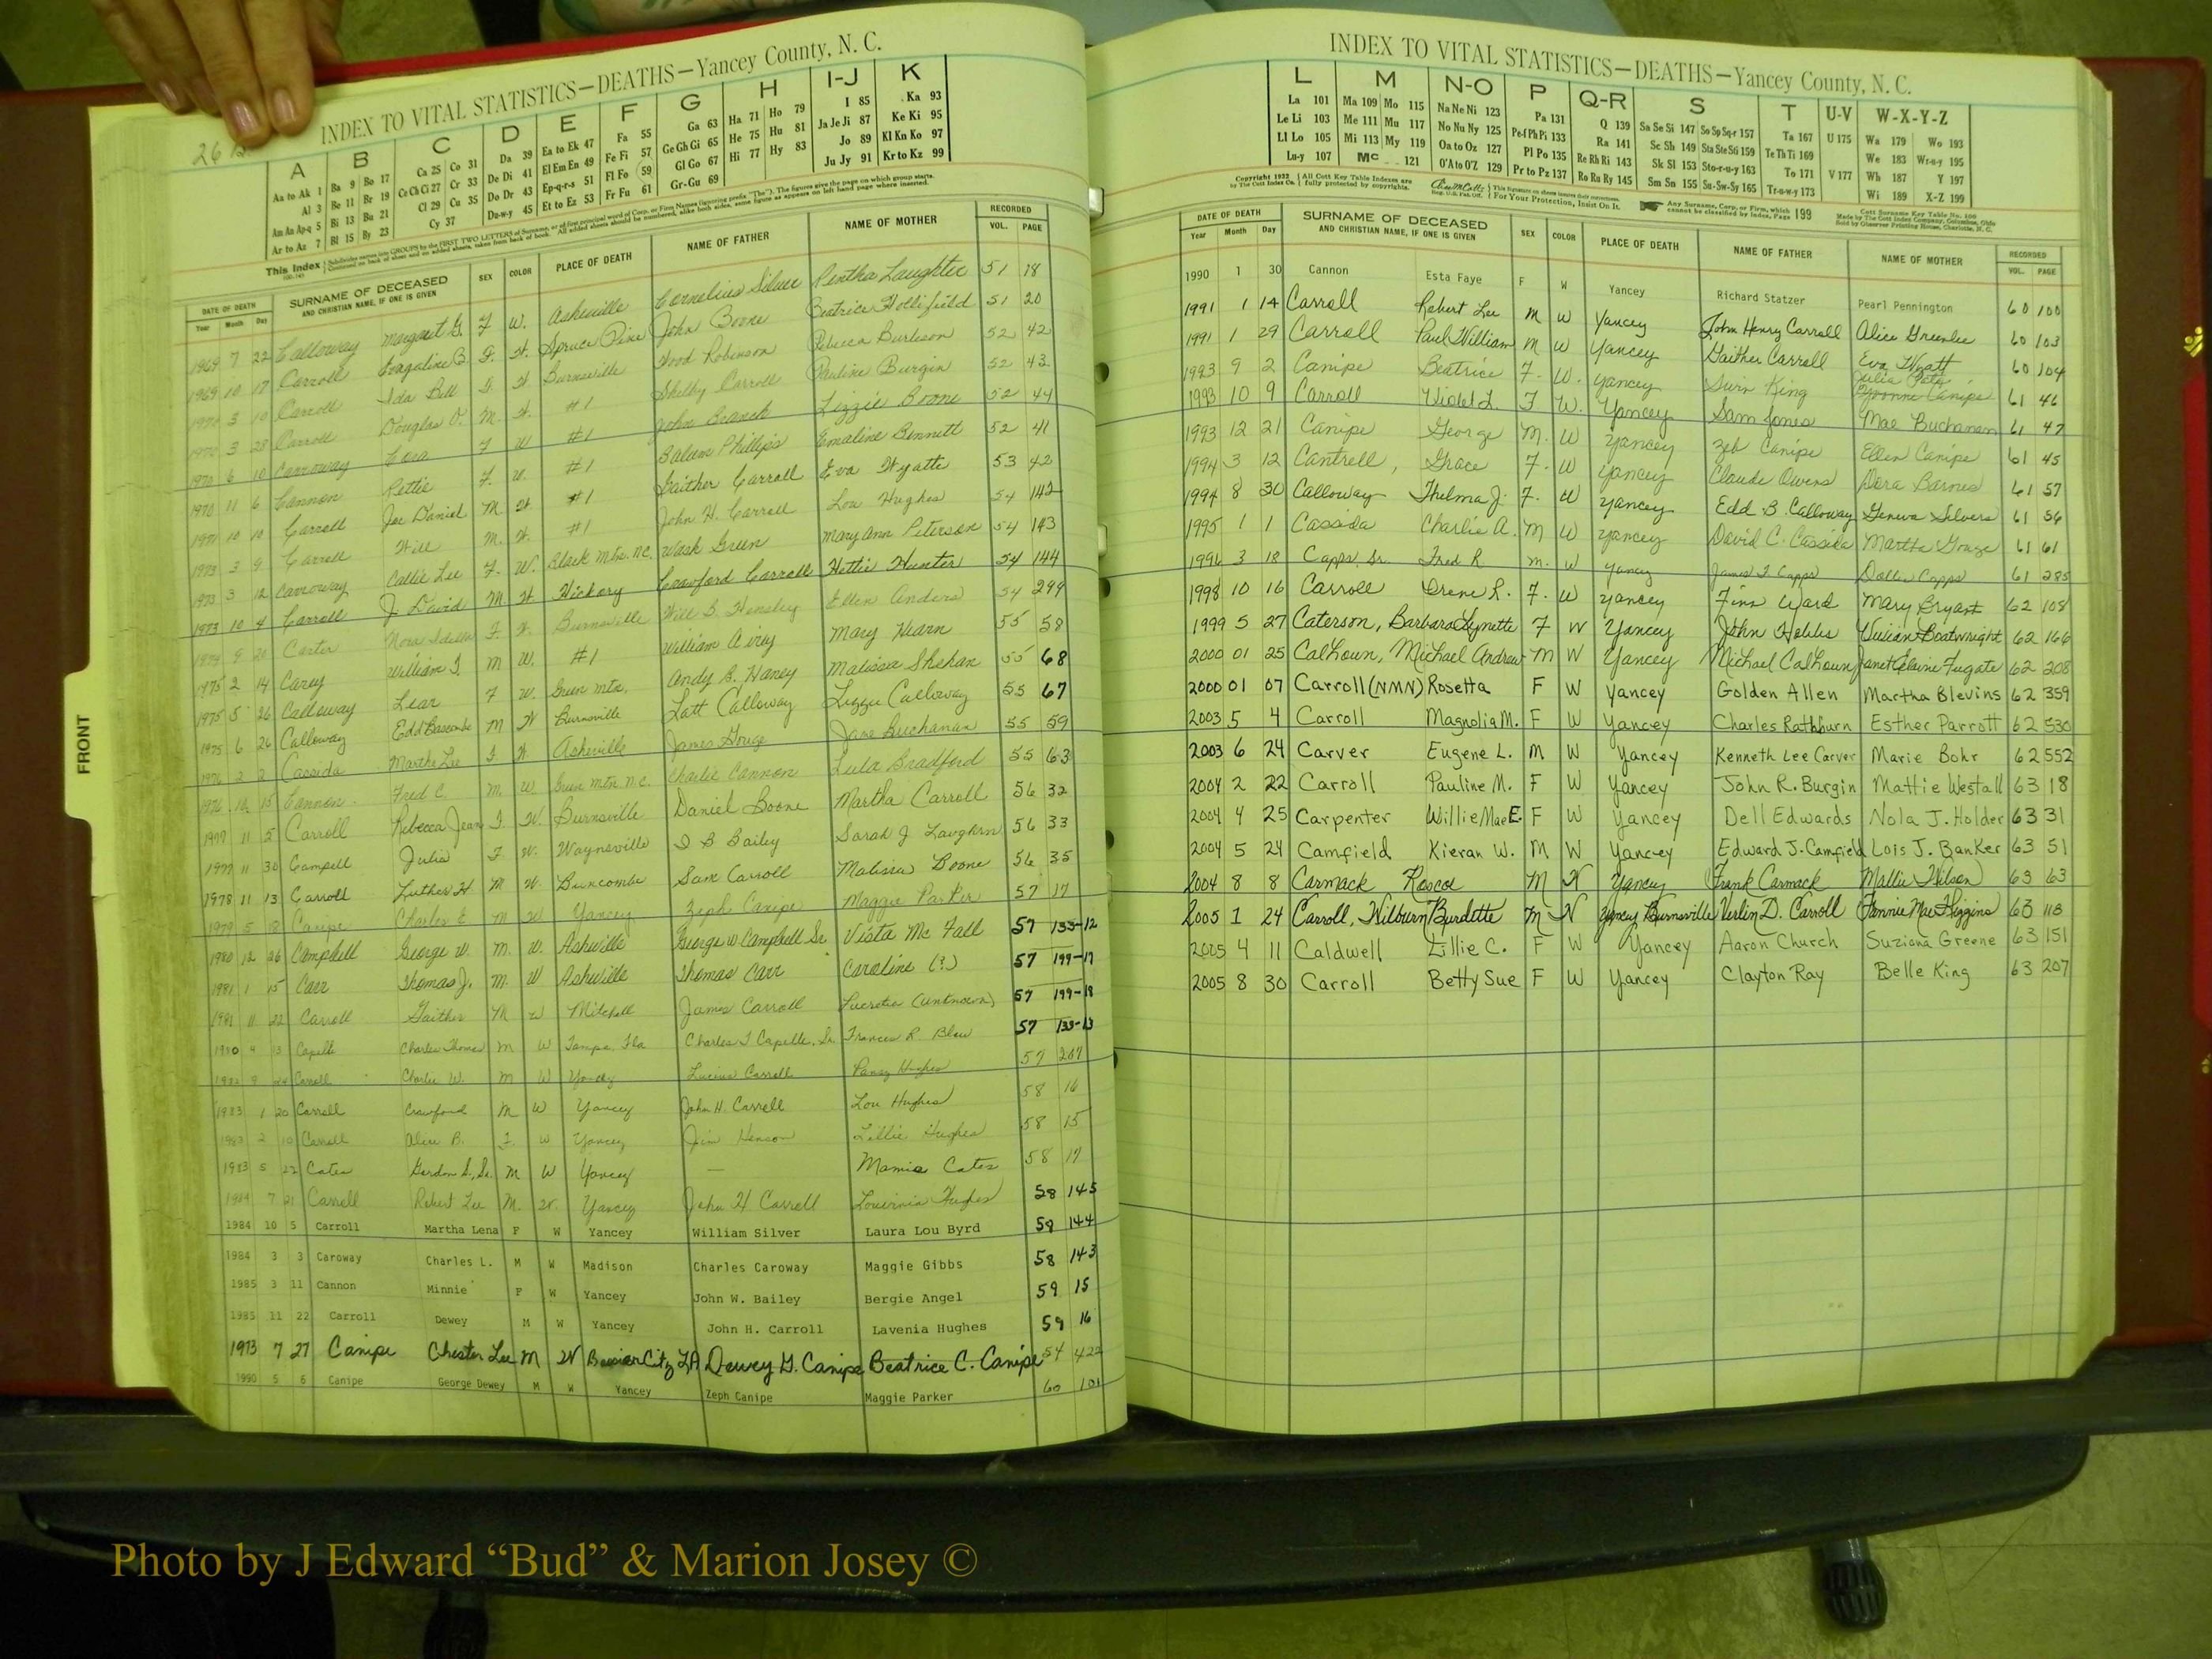 INDEX TO VITAL STATISTICS—DEATHS—Yancey County, N. C.
A B C D E F G H I-J K
Aa to Ak 1 Ba 9 Bo 17 Ca 25 Co 31 Da 39 Ea to Ek 47 Fa 55 Ga 63 Ha 71 Ho 79 I 85 Ka 93
Al 3 Be 11 Br 19 Ce Ch Ci 27 Cr 33 De Di 41 El Em En 49 Fe Fi 57 Ge Gh Gi 65 He 75 Hu 81 Ja Je Ji 87 Ke Ki 95
Am An Ap-q 5 Bi 13 Bu 21 Cl 29 Cu 35 Do Dr 43 Ep-q-r-s 51 Fl Fo 59 Gl Go 67 Hi 77 Hy 83 Jo 89 Kl Kn Ko 97
Ar to Az 7 Bl 15 By 23 Cy 37 Du-w-y 45 Et to Ez 53 Fr Fu 61 Gr-Gu 69 Ju Jy 91 Kr to Kz 99
DATE OF DEATH SURNAME OF DECEASED AND CHRISTIAN NAME, IF ONE IS GIVEN SEX COLOR PLACE OF DEATH NAME OF FATHER NAME OF MOTHER RECORDED
Year Month Day VOL. PAGE
1969 7 22 Calloway Margaret G. F W. Asheville Cornelius Silver Rintha Laughter 51 18
1969 10 17 Carroll B. F. W. Spruce Pine John Boone Beatrice Hollifield 51 20
1970 3 10 Carroll Ida Bell F W Burnsville Wood Robinson Rebecca Burleson 52 42
1970 3 28 Carroll Douglas O. M. W. #1 Shelby Carroll Pauline Burgin 52 43
1970 6 10 Carroway Cora F W #1 John Branch Lizzie Boone 52 44
1970 11 6 Cannon Rettie F. W. #1 Balum Phillips Emaline Bennett 52 41
1971 10 10 Carroll Joe Daniel M W #1 Gaither Carroll Eva Wyatte 53 42
1973 3 9 Carroll Will M. W. #1 John H. Carroll Lou Hughes 54 142
1973 3 12 Carroway Callie Lee F. W. Black Mtn. N.C. Wash Green Mary Ann Peterson 54 143
1973 10 4 Carroll J. David M W Hickory Crawford Carroll Hettie Hunter 54 144
1974 9 20 Carter Nora F. W. Burnsville Will B Hensley Ellen Anders 54 299
1975 2 14 Carey William I. M W. #1 William Airey Mary Hearn 55 58
1975 5 26 Calloway Lear F W. Green Mtn. Andy B. Haney Malissa Shehan 55 68
1975 6 26 Calloway Edd Bascombe M W Burnsville Latt Calloway Lizzie Calloway 55 67
1976 2 2 Cassida Martha Lee F W Asheville James Gouge Jane Buchanan 55 59
1976 12 15 Cannon Fred C. M W Green Mtn. N.C. Charlie Cannon Lula Bradford 55 63
1977 11 5 Carroll Rebecca Jean F. W. Burnsville Daniel Boone Martha Carroll 56 32
1977 11 30 Campell Julia F W. Waynesville D B Bailey Sarah J Laughrun 56 33
1978 11 13 Carroll Luther H. M W. Buncombe Sam Carroll Malissa Boone 56 35
1979 5 18 Canipe Charles E M W Yancey Zeph Canipe Maggie Parker 57 17
1980 12 26 Campbell George W. M. W. Asheville George W Campbell Sr. Vista McFall 57 133-12
1981 1 15 Carr Thomas J. M. W Asheville Thomas Carr Caroline (?) 57 199-17
1981 11 22 Carroll Gaither M W Mitchell James Carroll Lucretia (unknown) 57 199-18
1980 4 13 Capelle Charles Thomas M W Tampa, Fla Charles T Capelle, Sr. Frances R. Blew 57 133-13
1982 9 24 Carroll Charlie W. M W Yancey Lucius Carroll Pansy Hughes 57 207
1983 1 20 Carroll Crawford M W Yancey John H. Carroll Lou Hughes 58 16
1983 2 10 Carroll Alice B. F. W Yancey Jim Henson Lillie Hughes 58 15
1983 5 22 Cates Gordon S., Sr. M W Yancey — Mamie Cates 58 17
1984 7 21 Carroll Robert Lee M. W. Yancey John H Carroll Louvinia Hughes 58 145
1984 10 5 Carroll Martha Lena F W Yancey William Silver Laura Lou Byrd 58 144
1984 3 3 Caroway Charles L. M W Madison Charles Caroway Maggie Gibbs 58 143
1985 3 11 Cannon Minnie F W Yancey John W. Bailey Bergie Angel 59 15
1985 11 22 Carroll Dewey M W Yancey John H. Carroll Lavenia Hughes 59 16
1973 7 27 Canipe Chester Lee M W Bossier City LA Dewey G. Canipe Beatrice C. Canipe 54 422
1990 5 6 Canipe George Dewey M W Yancey Zeph Canipe Maggie Parker 60 101
FRONT
INDEX TO VITAL STATISTICS—DEATHS—Yancey County, N. C.
L M N-O P Q-R S T U-V W-X-Y-Z
La 101 Ma 109 Mo 115 Na Ne Ni 123 Pa 131 Q 139 Sa Se Si 147 So Sp Sq-r 157 Ta 167 U 175 Wa 179 Wo 193
Le Li 103 Me 111 Mu 117 No Nu Ny 125 Pe-f Ph Pi 133 Ra 141 Sc Sh 149 Sta Ste Sti 159 Te Th Ti 169 We 183 Wr-u-y 195
Ll Lo 105 Mi 113 My 119 Oa to Oz 127 Pl Po 135 Re Rh Ri 143 Sk Sl 153 Sto-r-u-y 163 To 171 V 177 Wh 187 Y 197
Lu-y 107 Mc 121 O'A to O'Z 129 Pr to Pz 137 Ro Ru Ry 145 Sm Sn 155 Su-Sw-Sy 165 Tr-u-w-y 173 Wi 189 X-Z 199
Copyright 1932 by The Cott Index Co. All Cott Key Table Indexes are fully protected by copyrights. For Your Protection, Insist On It. Any Surname, Corp, or Firm, which cannot be classified by Index, Page 199
DATE OF DEATH SURNAME OF DECEASED AND CHRISTIAN NAME, IF ONE IS GIVEN SEX COLOR PLACE OF DEATH NAME OF FATHER NAME OF MOTHER RECORDED
Year Month Day VOL. PAGE
1990 1 30 Cannon Esta Faye F W Yancey Richard Statzer Pearl Pennington 60 100
1991 1 14 Carroll Robert Lee M W Yancey John Henry Carroll Alice Greenlee 60 103
1991 1 29 Carroll Paul William M W Yancey Gaither Carroll Eva Wyatt 60 104
1993 9 2 Canipe Beatrice F. W. Yancey King Julia Yvonne Canipe 61 46
1993 10 9 Carroll Violet L. F W. Yancey Sam Jones Mae Buchanan 61 47
1993 12 21 Canipe George M. W Yancey Zeb Canipe Ellen Canipe 61 45
1994 3 12 Cantrell, Grace F. W Yancey Claude Owens Dora Barnes 61 57
1994 8 30 Calloway Thelma J. F. W Yancey Edd B. Calloway Geneva Silvers 61 56
1995 1 1 Cassida Charlie A. M W Yancey David C. Cassida Martha Gouge 61 61
1996 3 18 Capps Sr. Fred R. M. W Yancey James T. Capps Dollie Capps 61 285
1998 10 16 Carroll Irene R. F. W Yancey Finn Ward Mary Bryant 62 108
1999 5 27 Caterson, Barbara Lynette F W Yancey John Hobbs Vivian Boatwright 62 166
2000 01 25 Calhoun, Michael Andrew M W Yancey Michael Calhoun Janet Elaine Fugate 62 208
2000 01 07 Carroll (NMN) Rosetta F W Yancey Golden Allen Martha Blevins 62 359
2003 5 4 Carroll Magnolia M. F W Yancey Charles Rathburn Esther Parrott 62 530
2003 6 24 Carver Eugene L. M W Yancey Kenneth Lee Carver Marie Bohr 62 552
2004 2 22 Carroll Pauline M. F W Yancey John R. Burgin Mattie Westall 63 18
2004 4 25 Carpenter Willie Mae E. F W Yancey Dell Edwards Nola J. Holder 63 31
2004 5 24 Camfield Kieran W. M W Yancey Edward J. Camfield Lois J. Banker 63 51
2004 8 8 Carmack Roscoe M W Yancey Frank Carmack Mallie Wilson 63 63
2005 1 24 Carroll, Wilburn Burdette M W Yancey Burnsville Verlin D. Carroll Fannie Mae Higgins 63 118
2005 4 11 Caldwell Lillie C. F W Yancey Aaron Church Suziana Greene 63 151
2005 8 30 Carroll Betty Sue F W Yancey Clayton Ray Belle King 63 207
Photo by J Edward “Bud” & Marion Josey ©